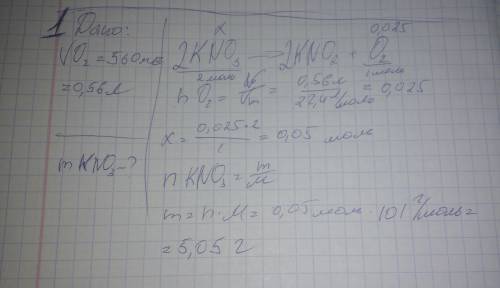 1 Дано:
VO₂ = 560 мл
= 0,56 л
m KNO₃ - ?
x 0,025
2KNO₃ → 2KNO₂ + O₂
2 моль 1 моль
n O₂ = V/Vm = 0,56 л / 22,4 л/моль = 0,025
x = 0,025·2 / 1 = 0,05 моль
n KNO₃ = m/M
m = n · M = 0,05 моль · 101 г/моль =
= 5,05 г